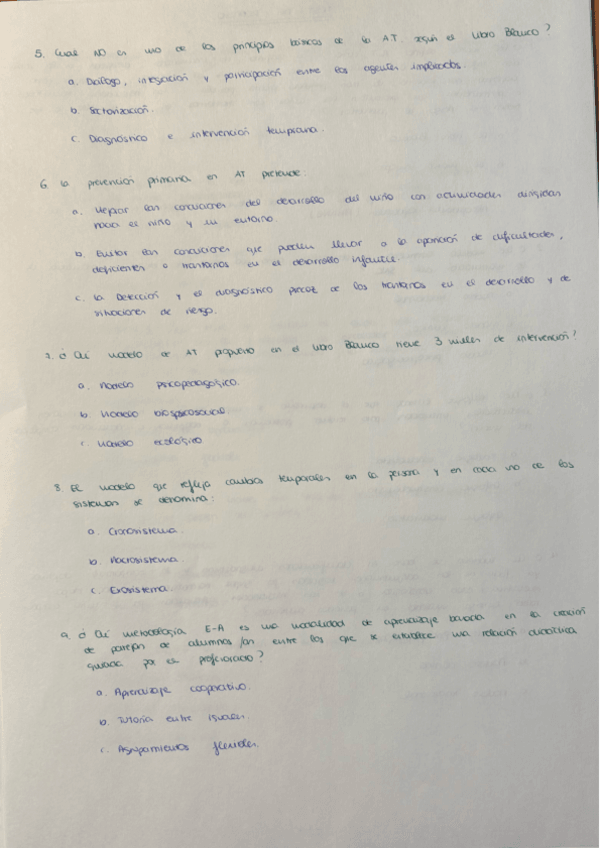 5. Cual NO es uno de los principios básicos de la A.T. según el Libro Blanco?
a. Diálogo, integración y participación entre los agentes implicados.
b. Sectorización.
c. Diagnóstico e intervención temprana.
6. La prevención primaria en AT pretende:
a. Mejorar las condiciones del desarrollo del niño con actividades dirigidas
hacia el niño y su entorno.
b. Evitar las condiciones que pueden llevar a la aparición de dificultades,
deficiencias o trastornos en el desarrollo infantil.
c. La Detección y el diagnóstico precoz de los trastornos en el desarrollo y de
situaciones de riesgo.
7. ¿Qué modelo de AT propuesto en el Libro Blanco tiene 3 niveles de intervención?
a. Modelo psicopedagógico.
b. Modelo biopsicosocial
c. Modelo ecológico
8. El modelo que refleja cambios temporales en la persona y en cada uno de los
sistemas se denomina:
a. Cronosistema.
b. Macrosistema.
c. Exosistema.
9. ¿Qué metodología E-A es una modalidad de aprendizaje basada en la creación
de parejas de alumnos/as entre los que se establece una relación didáctica
guiada por el profesorado?
a. Aprendizaje cooperativo.
b. Tutoría entre iguales.
c. Agrupamientos flexibles.